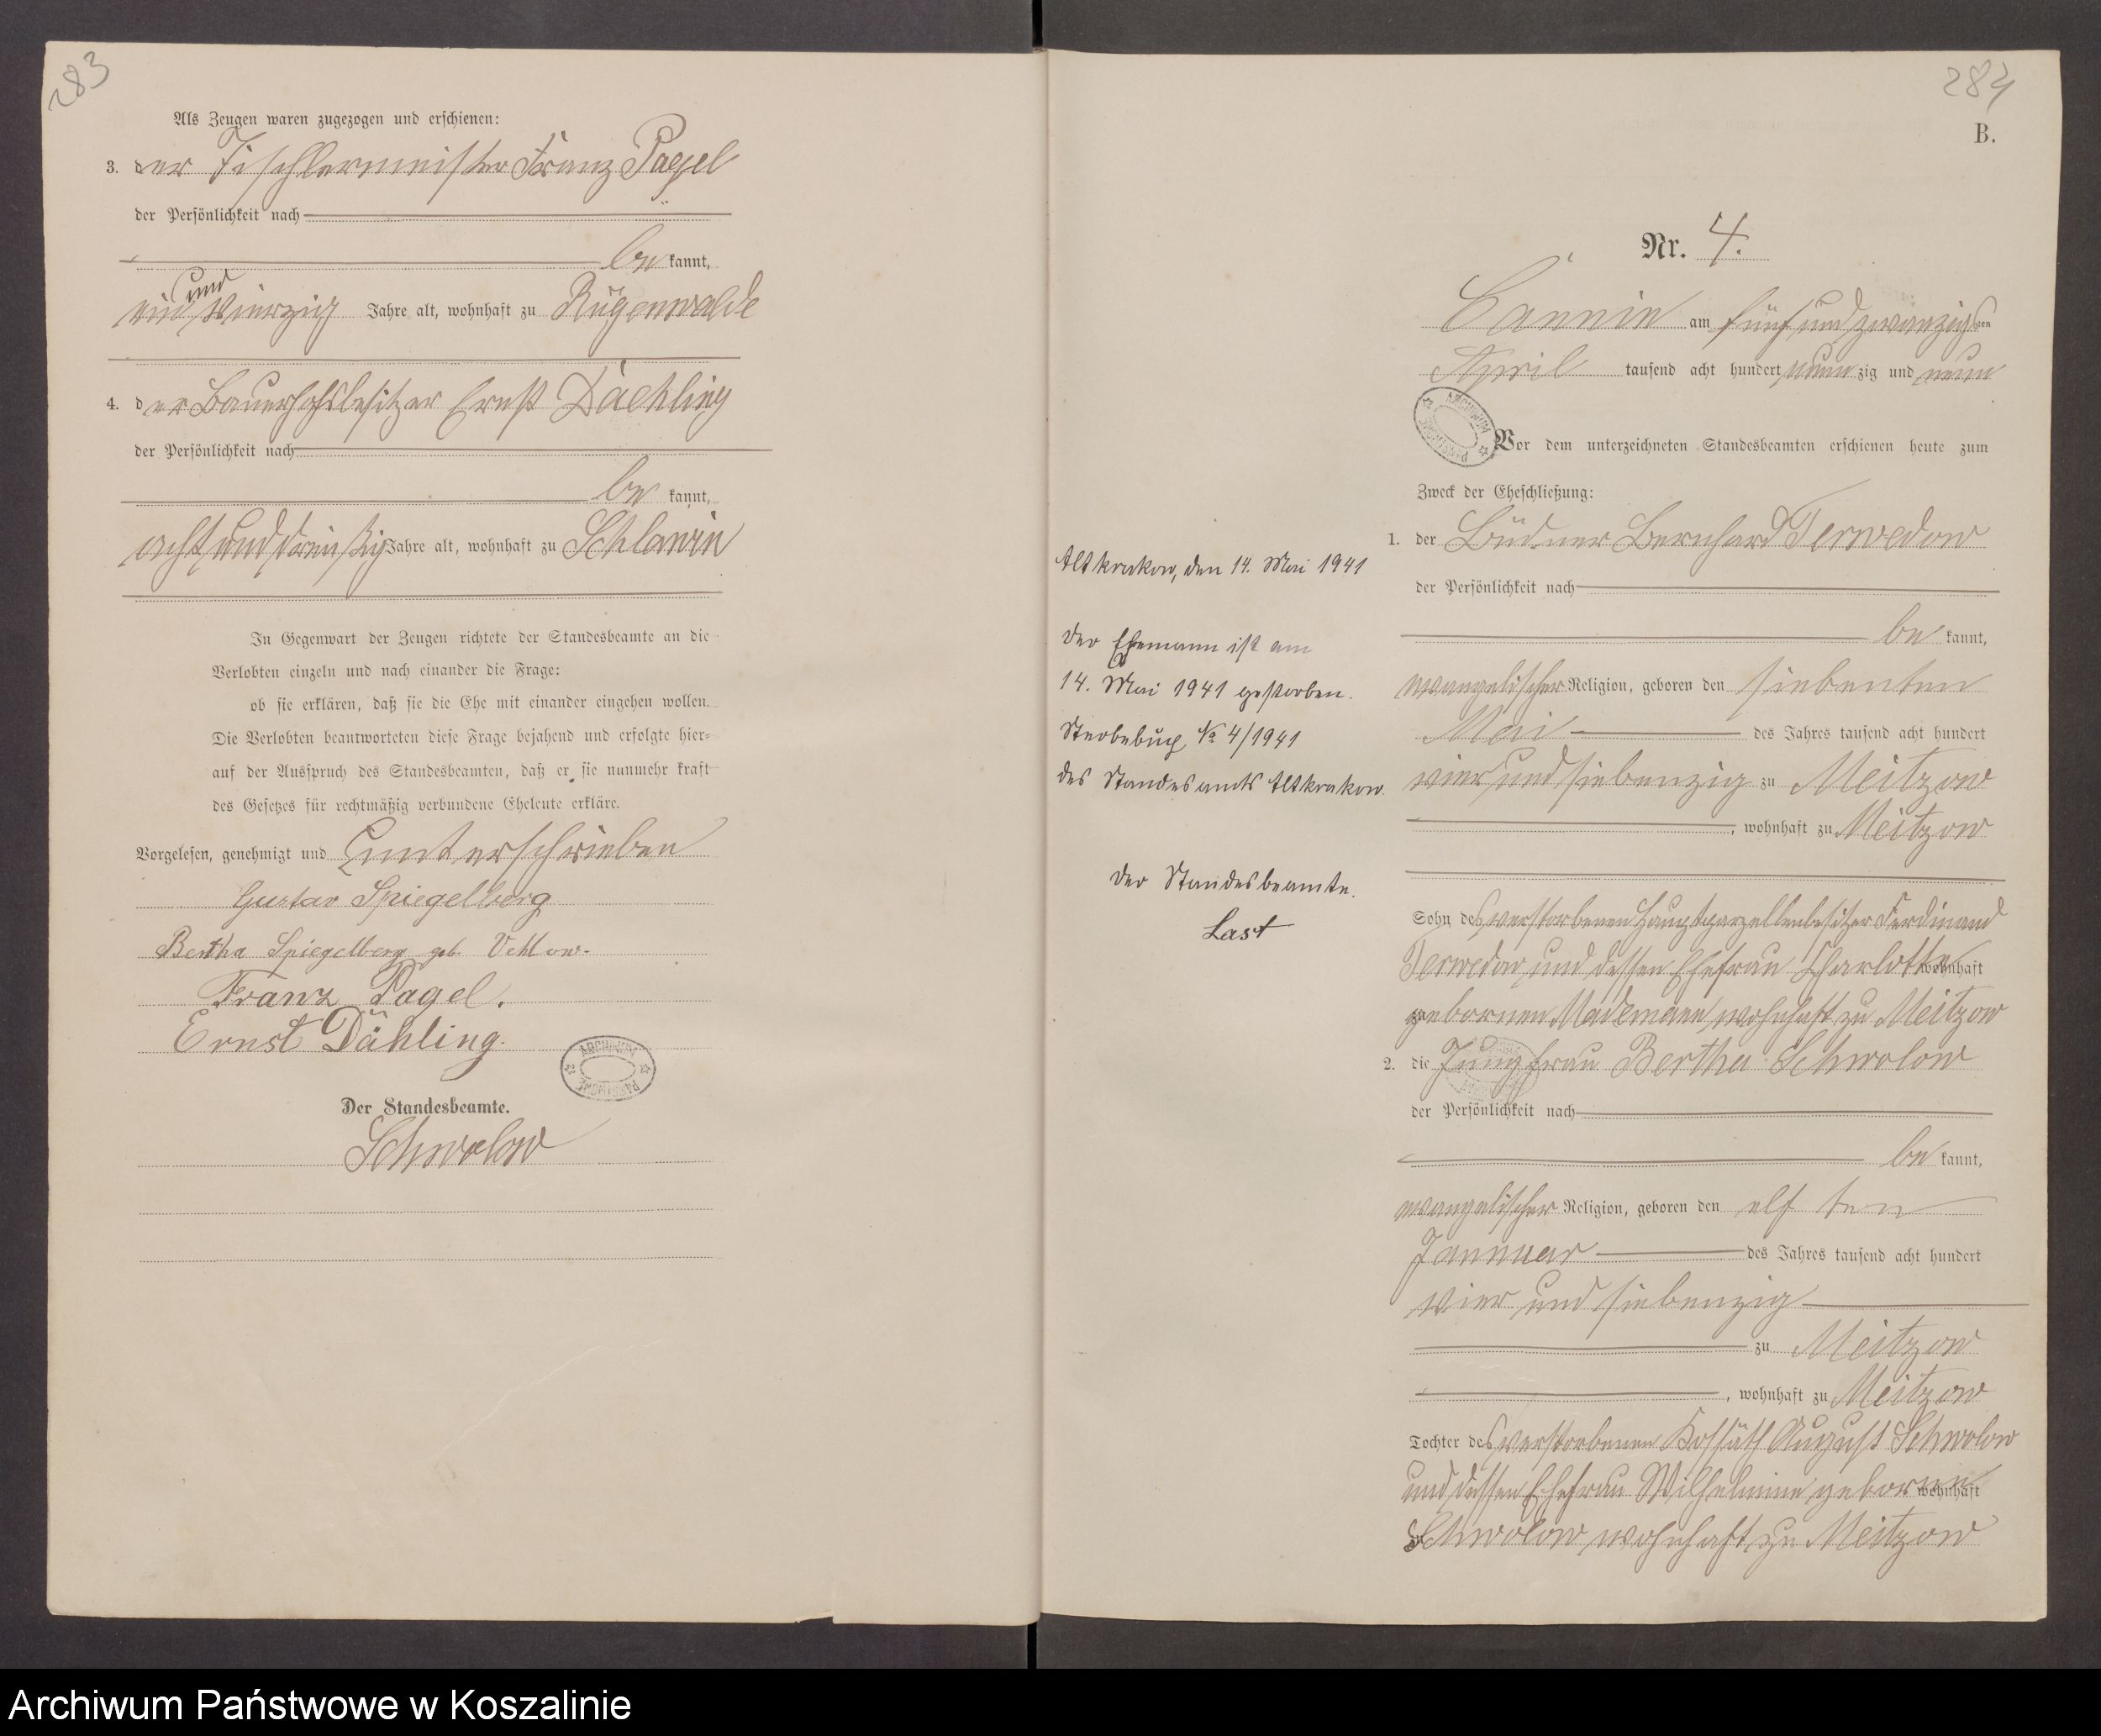 283
Als Zeugen waren zugezogen und erschienen:
3. der Tischlermeister Franz Pagel
der Persönlichkeit nach
be kannt,
ein und vierzig Jahre alt, wohnhaft zu Rügenwalde
4. der Bauerhofsbesitzer Ernst Daehling
der Persönlichkeit nach
be kannt,
acht und dreißig Jahre alt, wohnhaft zu Schlawin
In Gegenwart der Zeugen richtete der Standesbeamte an die
Verlobten einzeln und nach einander die Frage:
ob sie erklären, daß sie die Ehe mit einander eingehen wollen.
Die Verlobten beantworteten diese Frage bejahend und erfolgte hier-
auf der Ausspruch des Standesbeamten, daß er sie nunmehr kraft
des Gesetzes für rechtmäßig verbundene Eheleute erkläre.
Vorgelesen, genehmigt und unterschrieben
Gustav Spiegelberg
Bertha Spiegelberg geb. Vehlow.
Franz Pagel.
Ernst Dähling.
ARCHIWUM PAŃSTWOWE
Der Standesbeamte.
Schwolow
284
B.
Nr. 4.
Cannin am fünf und zwanzigsten
April tausend acht hundert neunzig und neun
ARCHIWUM PAŃSTWOWE
Vor dem unterzeichneten Standesbeamten erschienen heute zum
Zweck der Eheschließung:
1. der Büdner Bernhard Terwedow
der Persönlichkeit nach
be kannt,
evangelischer Religion, geboren den siebenten
Mai des Jahres tausend acht hundert
vier und siebenzig zu Meitzow
, wohnhaft zu Meitzow
Sohn des verstorbenen Hauptparzellenbesitzer Ferdinand
Terwedow und dessen Ehefrau Charlotte wohnhaft
gebornen Mademann wohnhaft zu Meitzow
2. die Jungfrau Bertha Schwolow
der Persönlichkeit nach
be kannt,
evangelischer Religion, geboren den elf ten
Januar des Jahres tausend acht hundert
vier und siebenzig
zu Meitzow
, wohnhaft zu Meitzow
Tochter des verstorbenen Kossäth August Schwolow
und dessen Ehefrau Wilhelmine geborne wohnhaft
Schwolow wohnhaft zu Meitzow
Altkrakow, den 14. Mai 1941
Der Ehemann ist am
14. Mai 1941 gestorben.
Sterbebuch No 4/1941
des Standesamts Altkrakow.
Der Standesbeamte.
Last
Archiwum Państwowe w Koszalinie